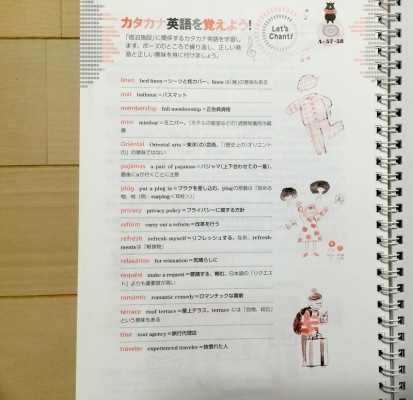 カタカナ英語を覚えよう!
Let's
Chant!
A:57-58
「宿泊施設」に関係するカタカナ英語を学習し
ます。ポーズのところで繰り返し、正しい発
音と正しい意味を身に付けましょう。
linen bed linen＝シーツと枕カバー。linen は「麻」の意味もある
mat bathmat＝バスマット
membership full membership＝正会員資格
mini minibar＝ミニバー、（ホテルの客室などの）酒類常備用冷蔵
庫
Oriental Oriental arts＝東洋（の）芸術。「（歴史上の）オリエント
の」の意味ではない
pajamas a pair of pajamas＝パジャマ（上下合わせての一着）。
最後にsが付くことに注意
plug put a plug in＝プラグを差し込む。plugの原義は「詰める
物、栓（例：earplug＜耳栓＞）」
privacy privacy policy＝プライバシーに関する方針
reform carry out a reform＝改革を行う
refresh refresh myself＝リフレッシュする。なお、refresh-
mentsは「軽食物」
relaxation for relaxation＝気晴らしに
request make a request＝要請する、頼む。日本語の「リクエ
スト」よりも重要度が高い
romantic romantic comedy＝ロマンチックな喜劇
terrace roof terrace＝屋上テラス。terrace には「台地、段丘」
という意味もある
tour tour agency＝旅行代理店
traveler experienced traveler＝旅慣れた人